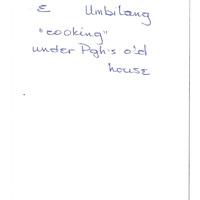 ε Umbilang
"cooking"
under Pgh's old
house